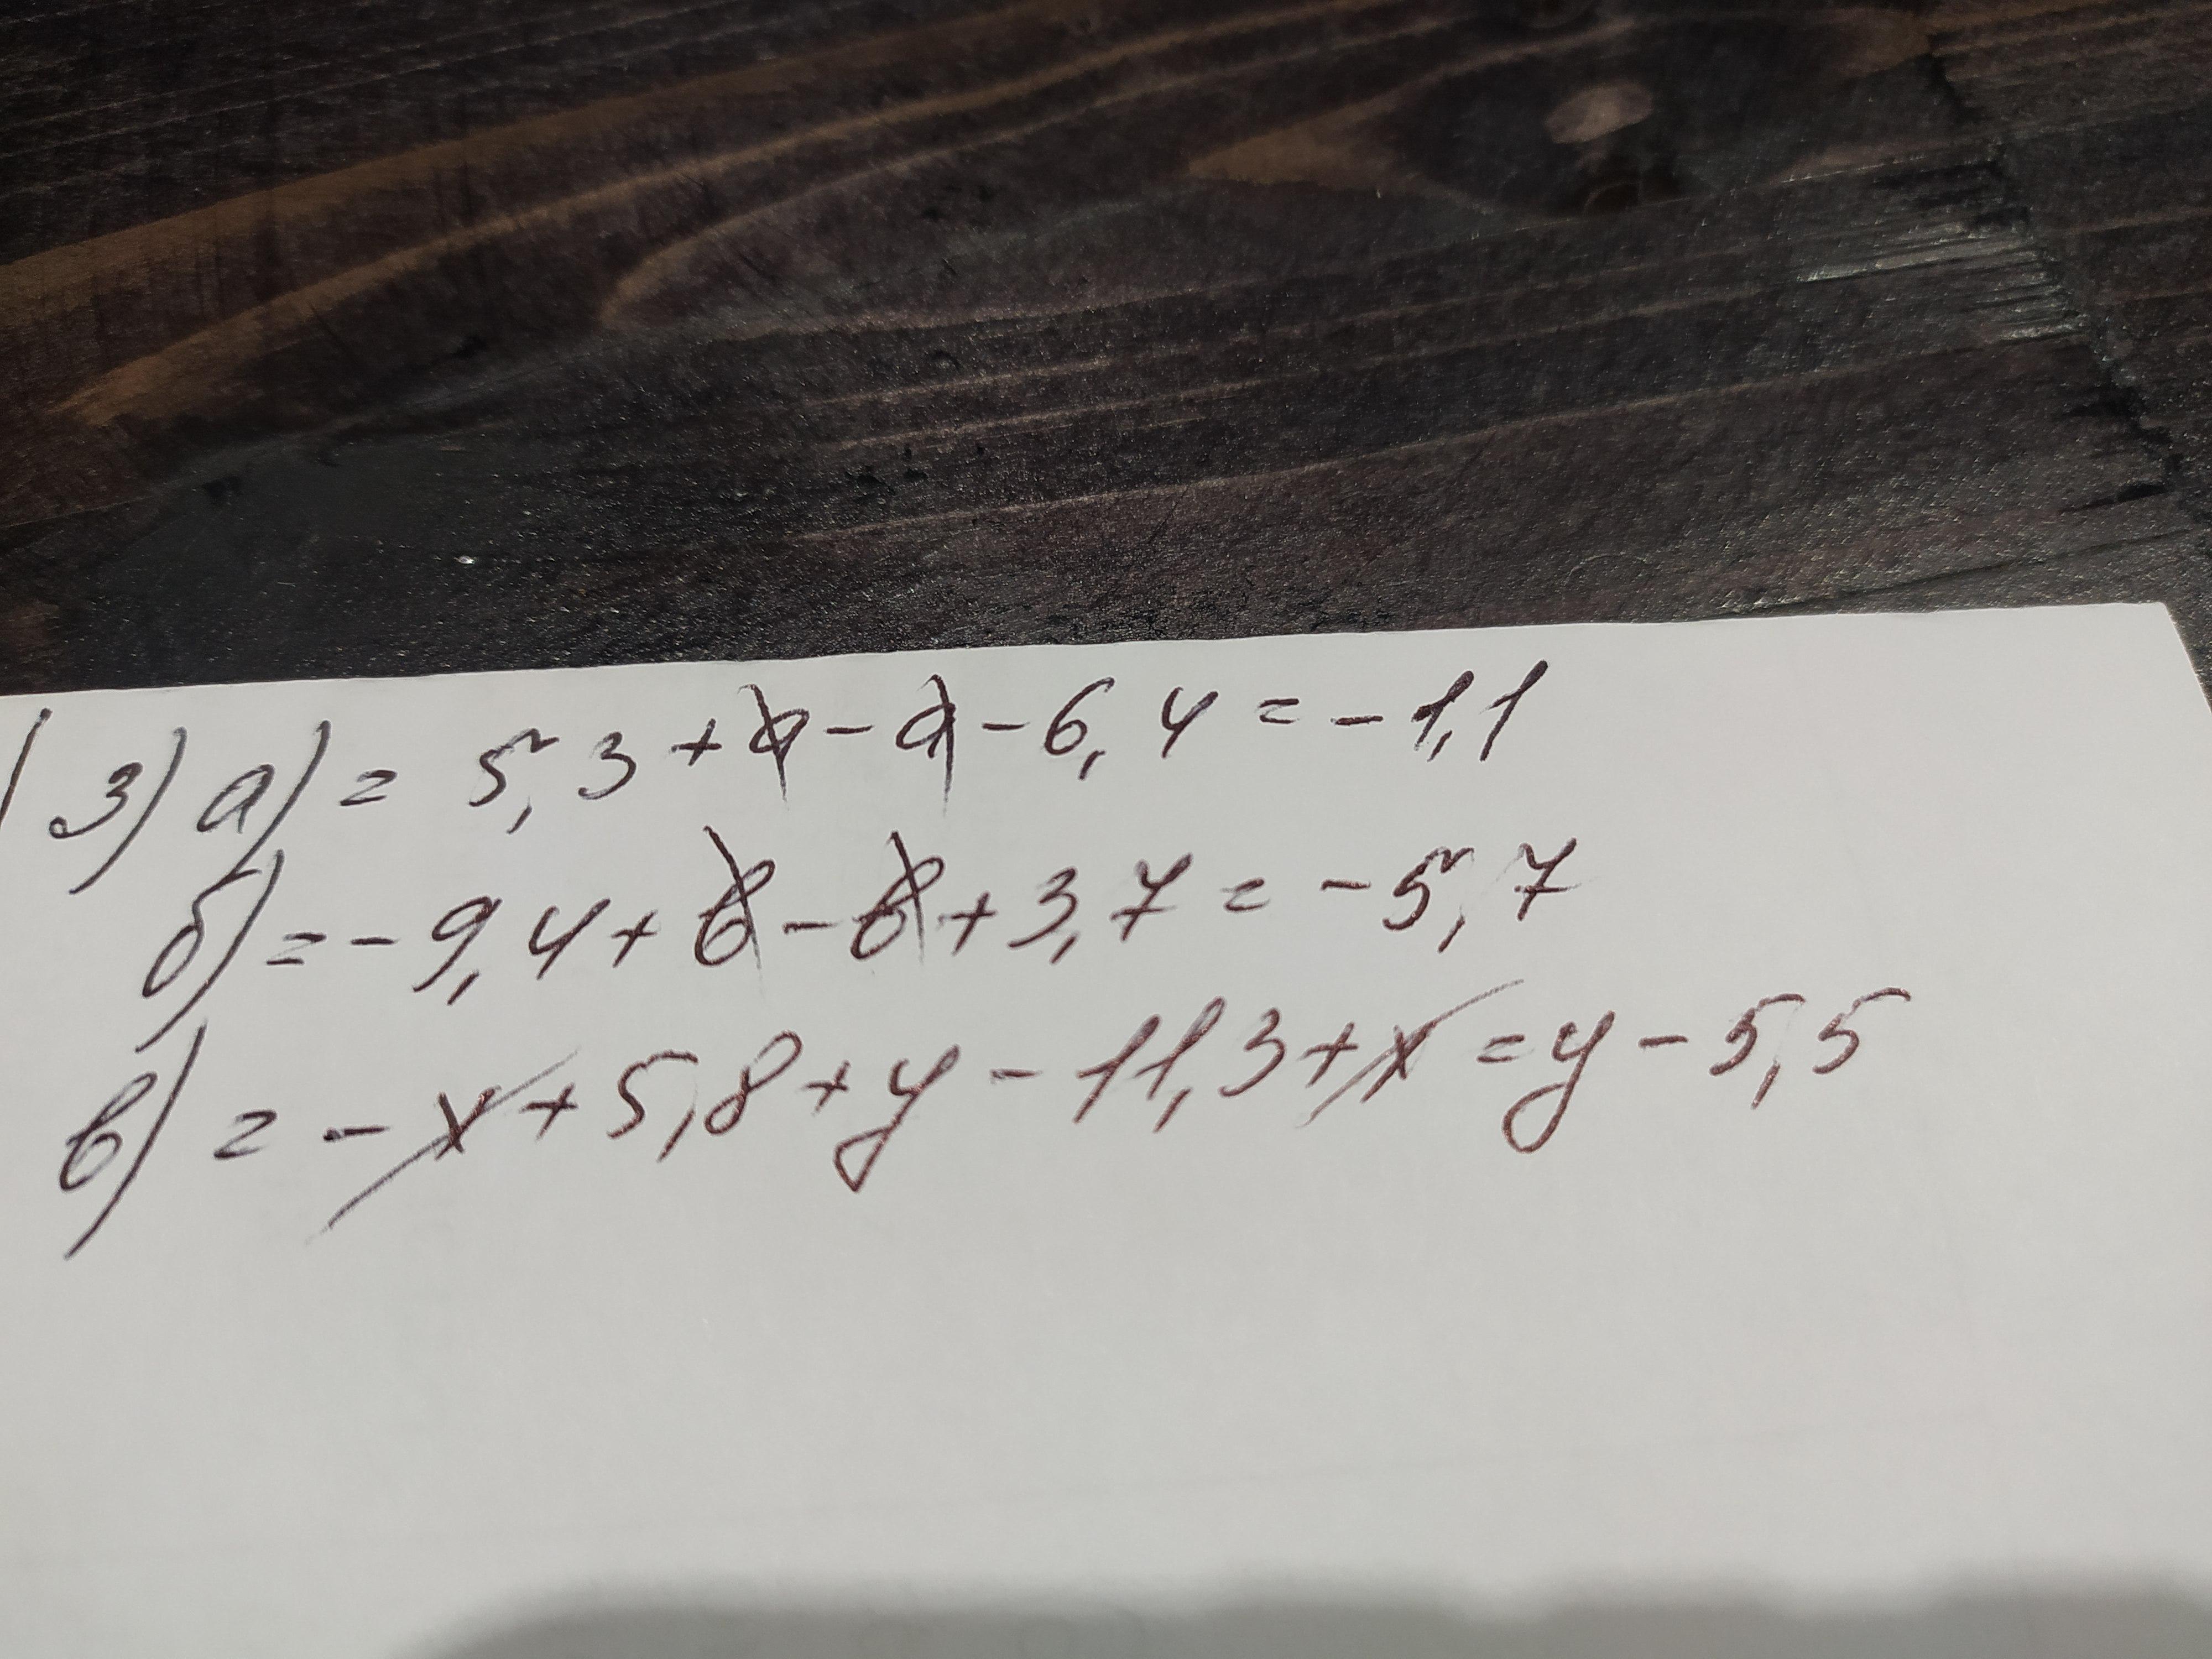 3) а) = 5,3 + а - а - 6,4 = - 1,1
б) = - 9,4 + в - в + 3,7 = - 5,7
в) = - х + 5,8 + у - 11,3 + х = у - 5,5